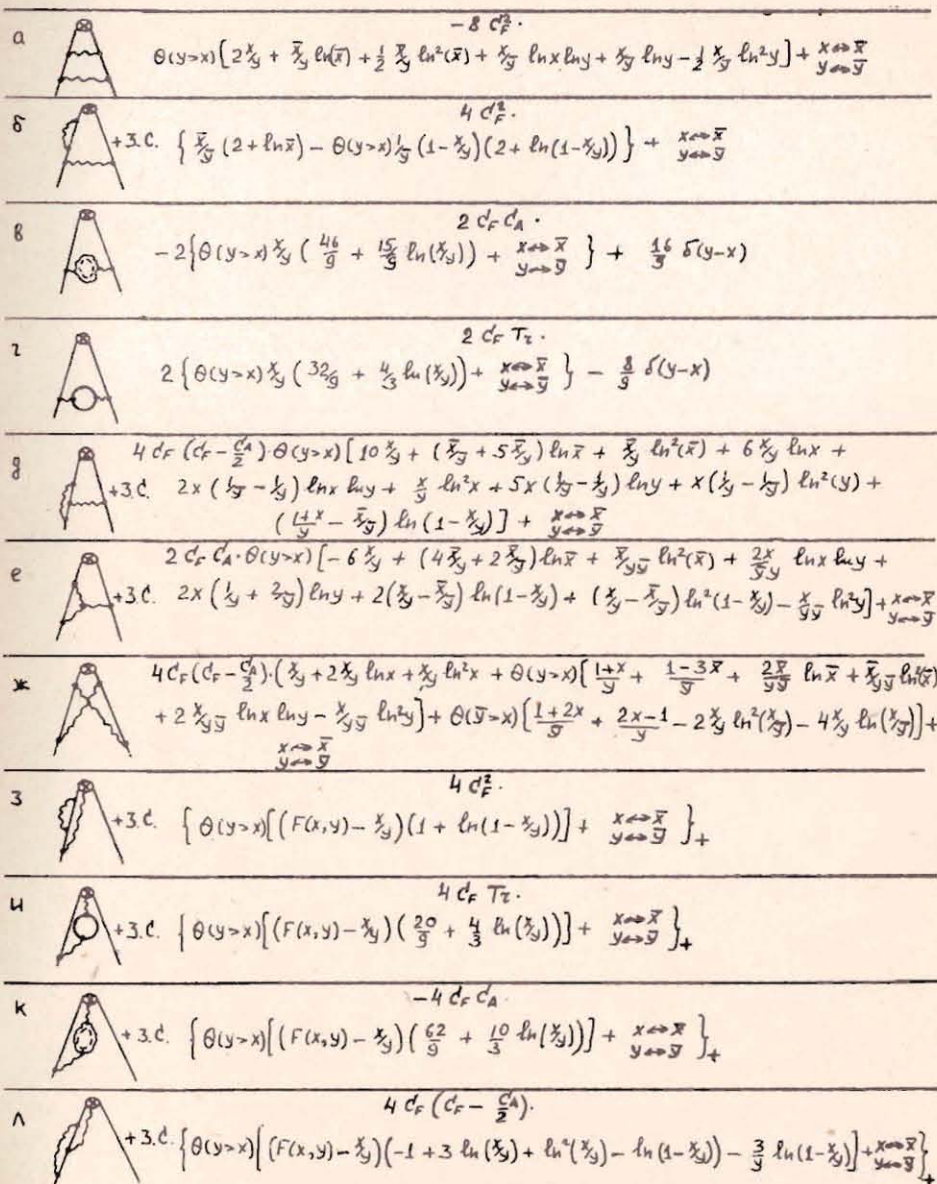 а
-8 C_F^2 ·
Θ(y>x)[2x/y + x̄/y ln(x̄) + 1/2 x̄/ȳ ln²(x̄) + x/ȳ lnx lny + x/ȳ lny - 1/2 x/ȳ ln²y] + x↔x̄ y↔ȳ
б
4 C_F^2 ·
+З.С. { x̄/ȳ (2+lnx̄) - Θ(y>x) 1/ȳ (1-x/y)(2+ln(1-x/y)) } + x↔x̄ y↔ȳ
в
2 C_F C_A ·
-2{Θ(y>x) x/y (46/9 + 15/9 ln(x/y)) + x↔x̄ y↔ȳ } + 16/9 δ(y-x)
г
2 C_F Tr ·
2{Θ(y>x) x/y (32/9 + 4/3 ln(x/y)) + x↔x̄ y↔ȳ } - 8/9 δ(y-x)
д
4 C_F (C_F - C_A/2)·Θ(y>x)[10 x/y + (x̄/ȳ + 5x̄/y) lnx̄ + x̄/y ln²(x̄) + 6 x/y lnx +
+З.С. 2x(1/ȳ - 1/y) lnx lny + x/y ln²x + 5x(1/ȳ - 1/y) lny + x(1/y - 1/ȳ) ln²(y) +
((1+x)/y - x̄/ȳ) ln(1-x/y)] + x↔x̄ y↔ȳ
е
2 C_F C_A·Θ(y>x)[-6 x/y + (4x̄/y + 2x̄/ȳ) lnx̄ + x̄/yȳ ln²(x̄) + 2x/ȳy lnx lny +
+З.С. 2x(1/y + 2/ȳ) lny + 2(x/y - x̄/ȳ) ln(1-x/y) + (x/y - x̄/ȳ) ln²(1-x/y) - x/yȳ ln²y] + x↔x̄ y↔ȳ
ж
4 C_F(C_F - C_A/2)·(x/y + 2x/y lnx + x/y ln²x + Θ(y>x)[(1+x)/y + (1-3x̄)/ȳ + 2x̄/yȳ lnx̄ + x̄/yȳ ln²(x̄)
+ 2 x/yȳ lnx lny - x/yȳ ln²y] + Θ(ȳ>x)[(1+2x)/ȳ + (2x-1)/y - 2x/y ln²(x/ȳ) - 4x/y ln(x/ȳ)] +
x↔x̄ y↔ȳ
з
4 C_F^2 ·
+З.С. { Θ(y>x)[(F(x,y) - x/y)(1 + ln(1-x/y))] + x↔x̄ y↔ȳ }₊
и
4 C_F Tr ·
+З.С. { Θ(y>x)[(F(x,y) - x/y)(20/9 + 4/3 ln(x/y))] + x↔x̄ y↔ȳ }₊
к
-4 C_F C_A ·
+З.С. { Θ(y>x)[(F(x,y) - x/y)(62/9 + 10/3 ln(x/y))] + x↔x̄ y↔ȳ }₊
л
4 C_F (C_F - C_A/2)·
+З.С. {Θ(y>x)[(F(x,y) - x/y)(-1 + 3 ln(x/y) + ln²(x/y) - ln(1-x/y)) - 3/y ln(1-x/y)] + x↔x̄ y↔ȳ }₊